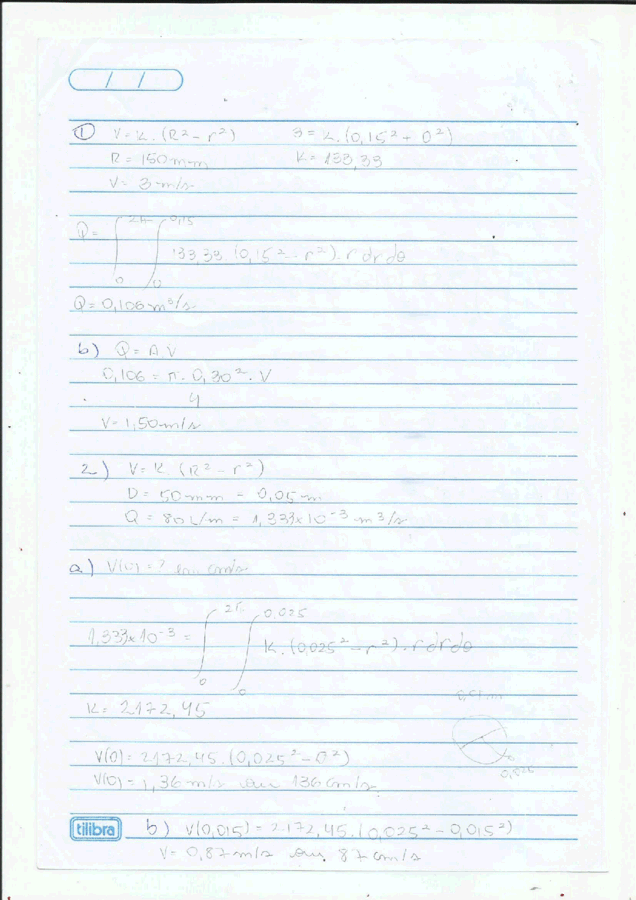 / /
① V = K. (R² - r²) 3 = K. (0,15² + 0²)
R = 150 mm K = 133,33
V = 3 m/s
Q = ∫ 2π 0 ∫ 0,15 0 133,33 (0,15² - r²). r dr dθ
Q = 0,106 m³/s
b) Q = A.V
0,106 = π. 0,30². V
4
V = 1,50 m/s
2) V = K. (R² - r²)
D = 50 mm = 0,05 m
Q = 80 L/m = 1,333x10⁻³ m³/s
a) V(0) = ? em cm/s
1,333x10⁻³ = ∫ 2π 0 ∫ 0,025 0 K. (0,025² - r²). r dr dθ
K = 2172,45
V(0) = 2172,45. (0,025² - 0²)
V(0) = 1,36 m/s ou 136 cm/s
0,025
tilibra b) V(0,015) = 2172,45. (0,025² - 0,015²)
V = 0,87 m/s ou 87 cm/s